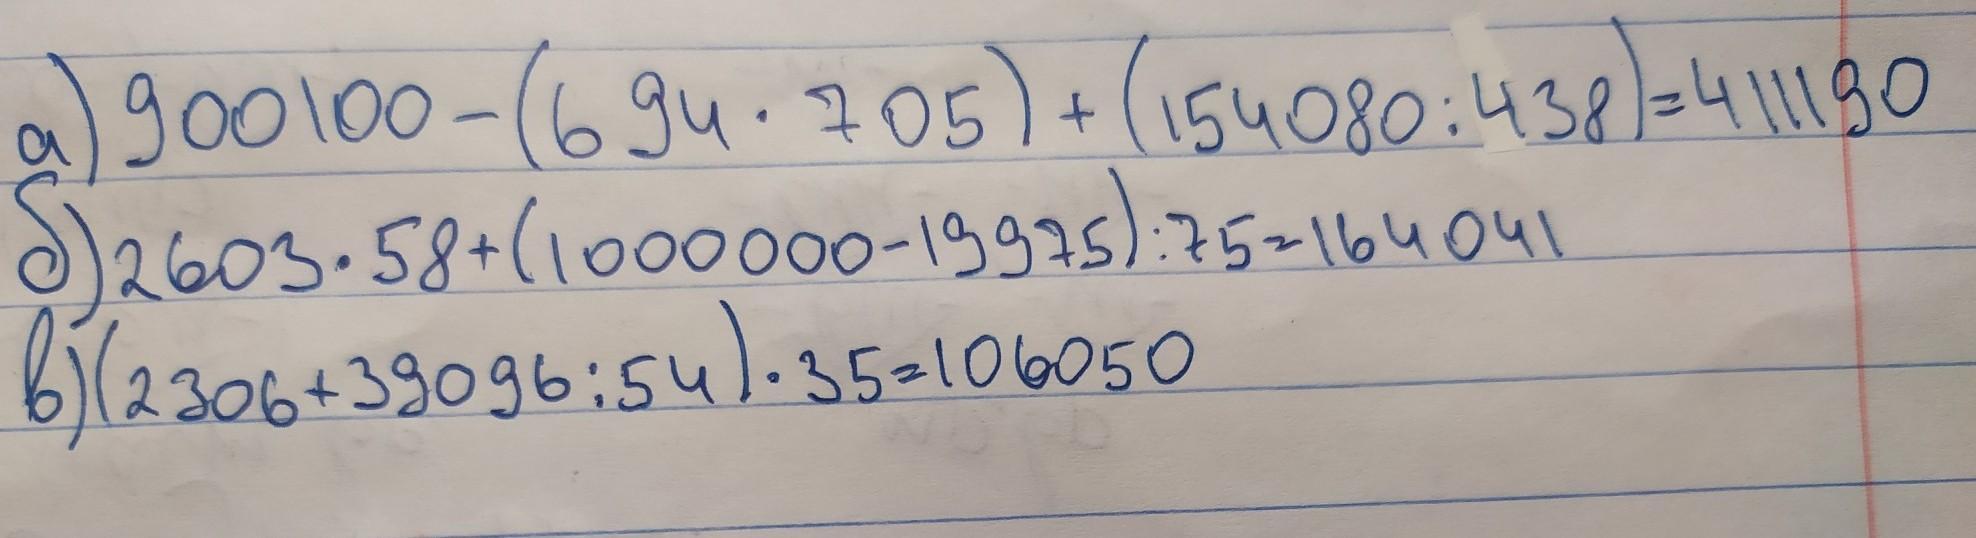 а) 900100-(694·705)+(154080:438)=411190
б) 2603·58+(1000000-19975):75=164041
в) (2306+39096:54)·35=106050